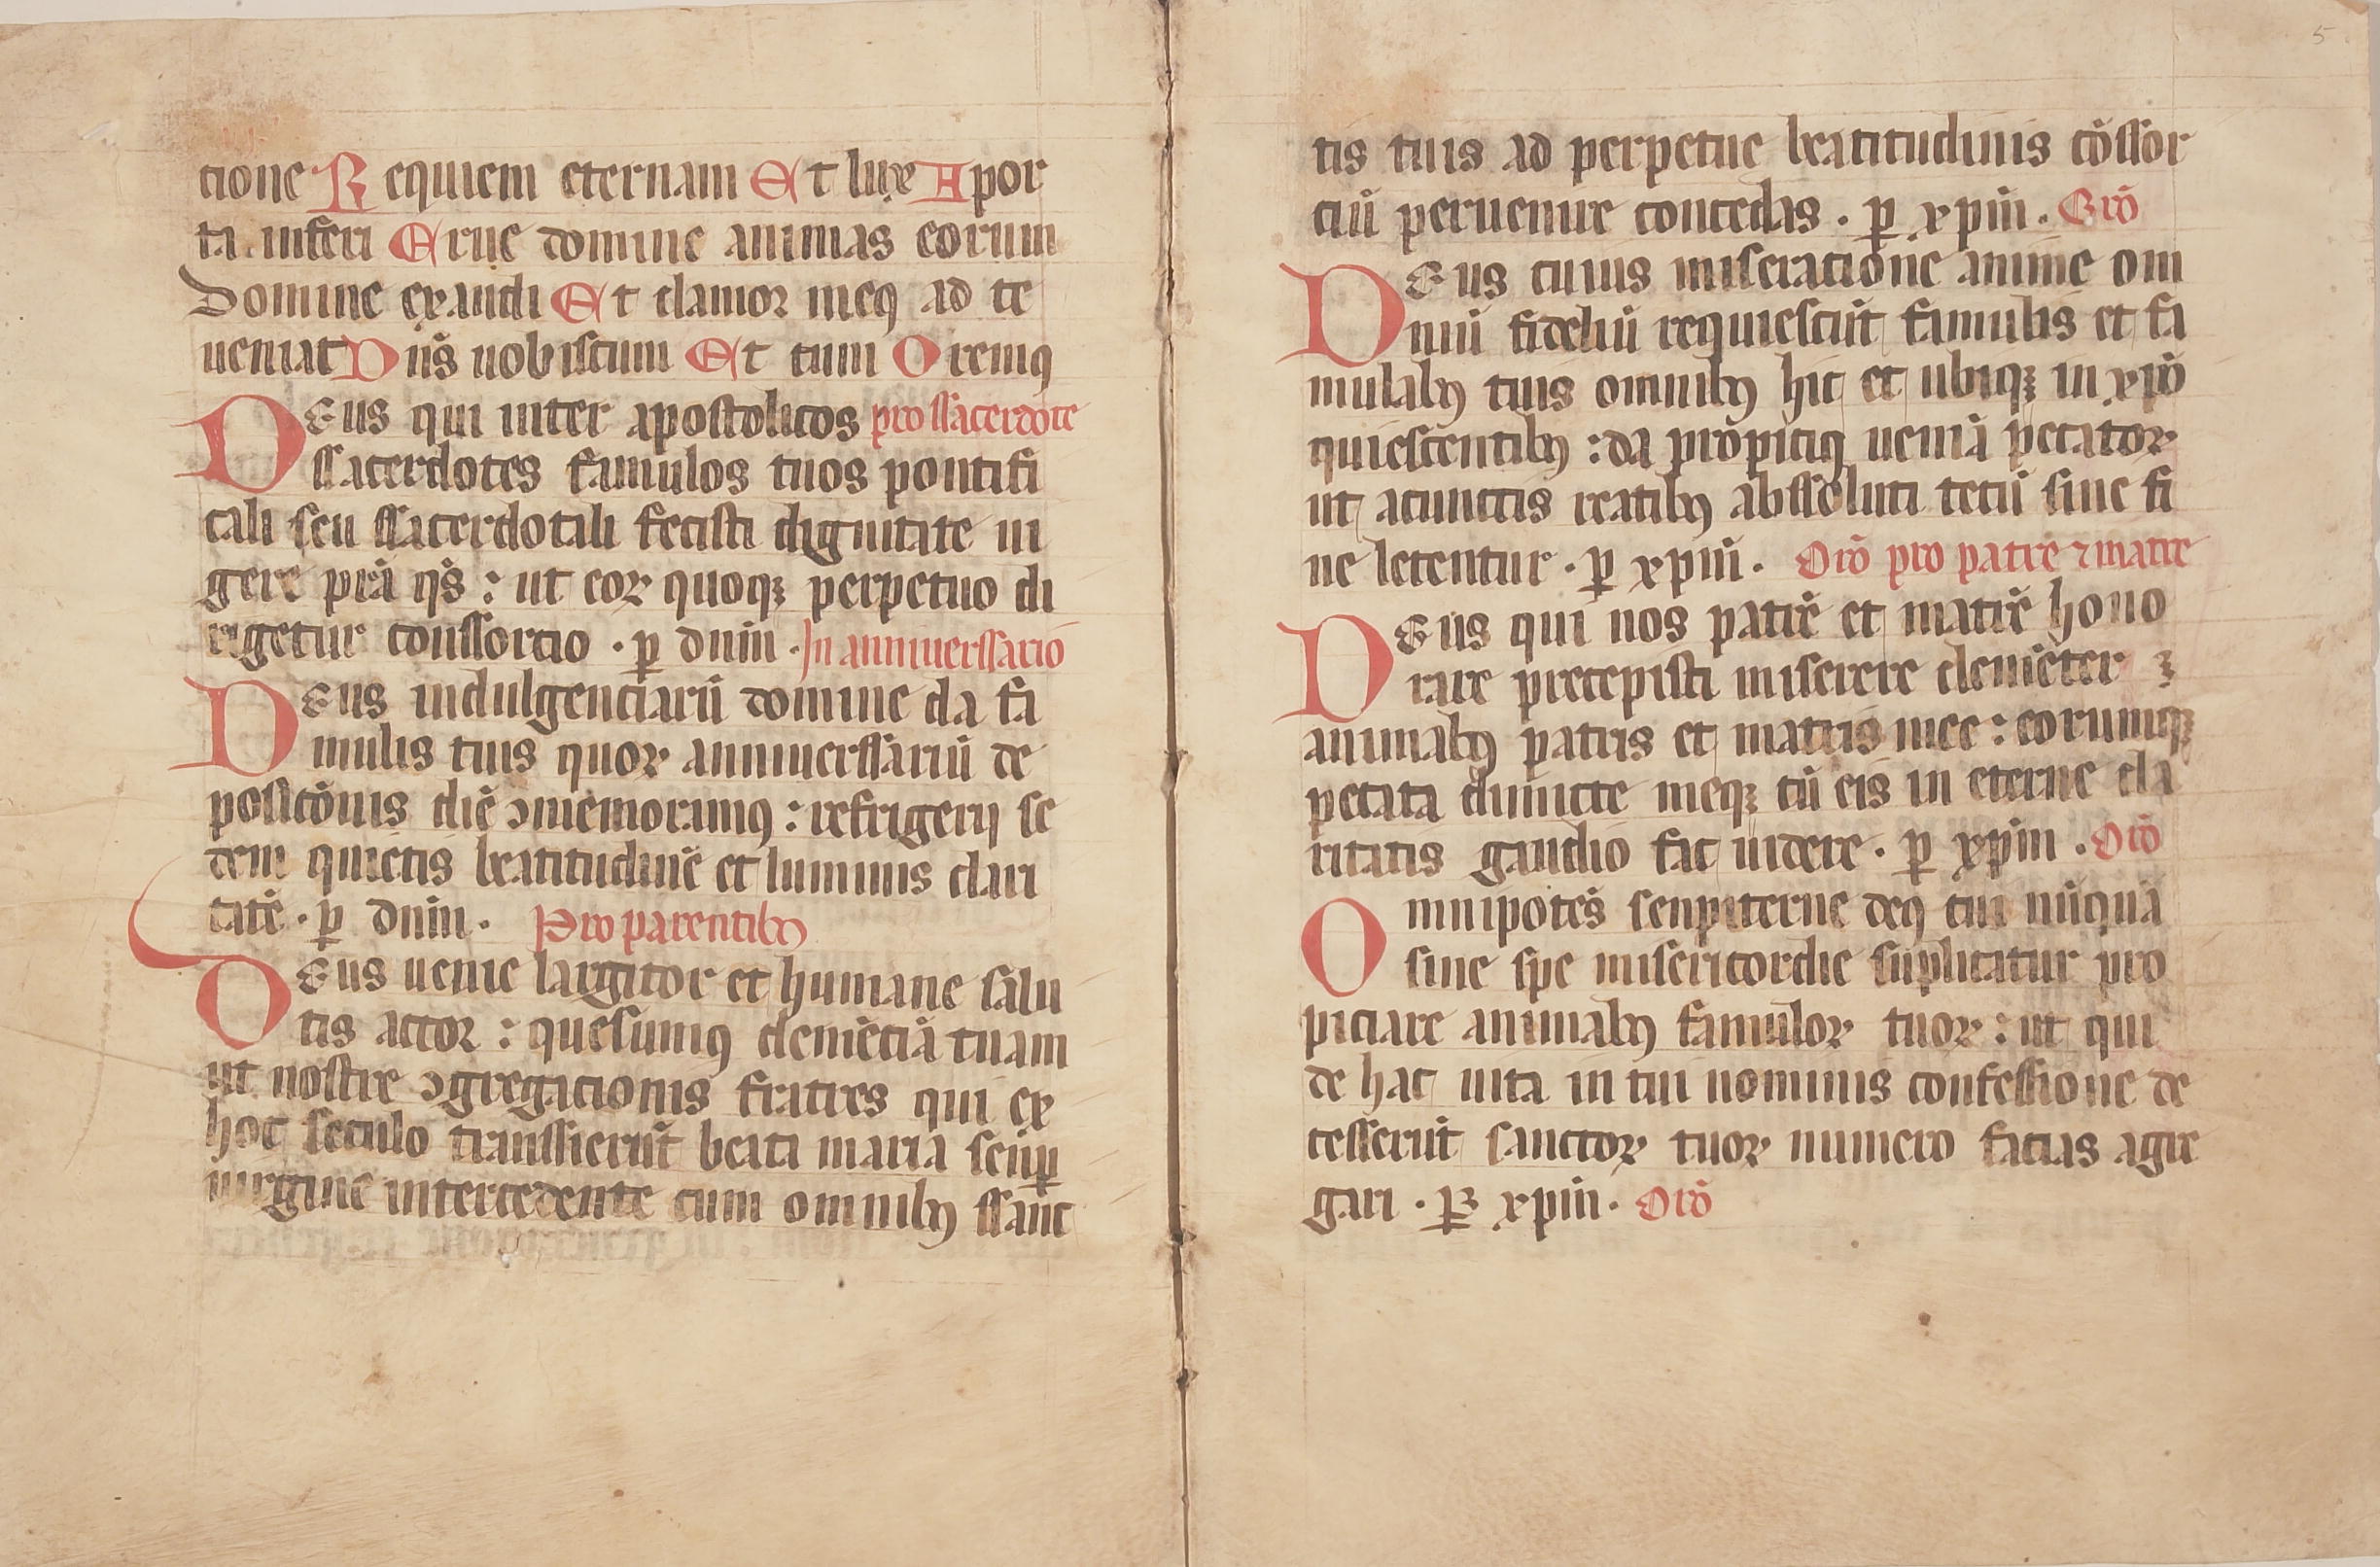 tione Requiem eternam Et luxe A por
ta inferi Erue domine animas eorum
Domine exaudi Et clamor meꝰ ad te
ueniat Dn̄s uobiscum Et cum Oremꝰ
Deus qui inter apostolicos pro ssacerdote
ssacerdotes famulos tuos pontifi
cali seu ssacerdotali fecisti dignitate ui
gere pr̄a qs̄ : ut eoꝝ quoqꝫ perpetuo di
rigetur conssorcio · ꝑ dn̄m · In anniuerssario
Deus indulgenciarū domine da fa
mulis tuis quoꝝ anniuerssariū de
positōnis diē ↄmemoramꝰ : refrigerij se
dem quietis beatitudinē et luminis clari
tatē · ꝑ dn̄m · Pro parentibꝰ
Deus uenie largitor et humane salu
tis actor : quesumꝰ clemēciā tuam
ut nostre ↄgregacionis fratres qui ex
hoc seculo transsierūt beata maria semꝑ
uirgine intercedente cum omnibꝰ ssanc
5
tis tuis ad perpetue beatitudinis cōssor
ciū peruenire concedas · ꝑ xp̄m · Orō
Deus cuius miseracione anime om
niū fideliū requiescūt famulis et fa
mulabꝰ tuis omnibꝰ hic et ubiqꝫ in xp̄o
quiescentibꝰ : da propiciꝰ ueniā pecatoꝝ
ut acunctis reatibꝰ abssoluti tecū sine fi
ne letentur · ꝑ xp̄m · Orō pro patre ⁊ matre
Deus qui nos patrē et matrē hono
rare precepisti miserere clemēter ꝫ
animabꝰ patris et matris mee : eorumqꝫ
pecata dimicte meqꝫ cū eis in eterne cla
ritatis gaudio fac uidere · ꝑ xp̄m · Orō
Omnipotēs senpiterne deꝰ cui nūquā
sine spe misericordie suplicatur pro
piciare animabꝰ famuloꝝ tuoꝝ : ut qui
de hac uita in tui nominis confessione de
cesserūt sanctoꝝ tuoꝝ numero facias agre
gari · ꝑ xp̄m · Orō